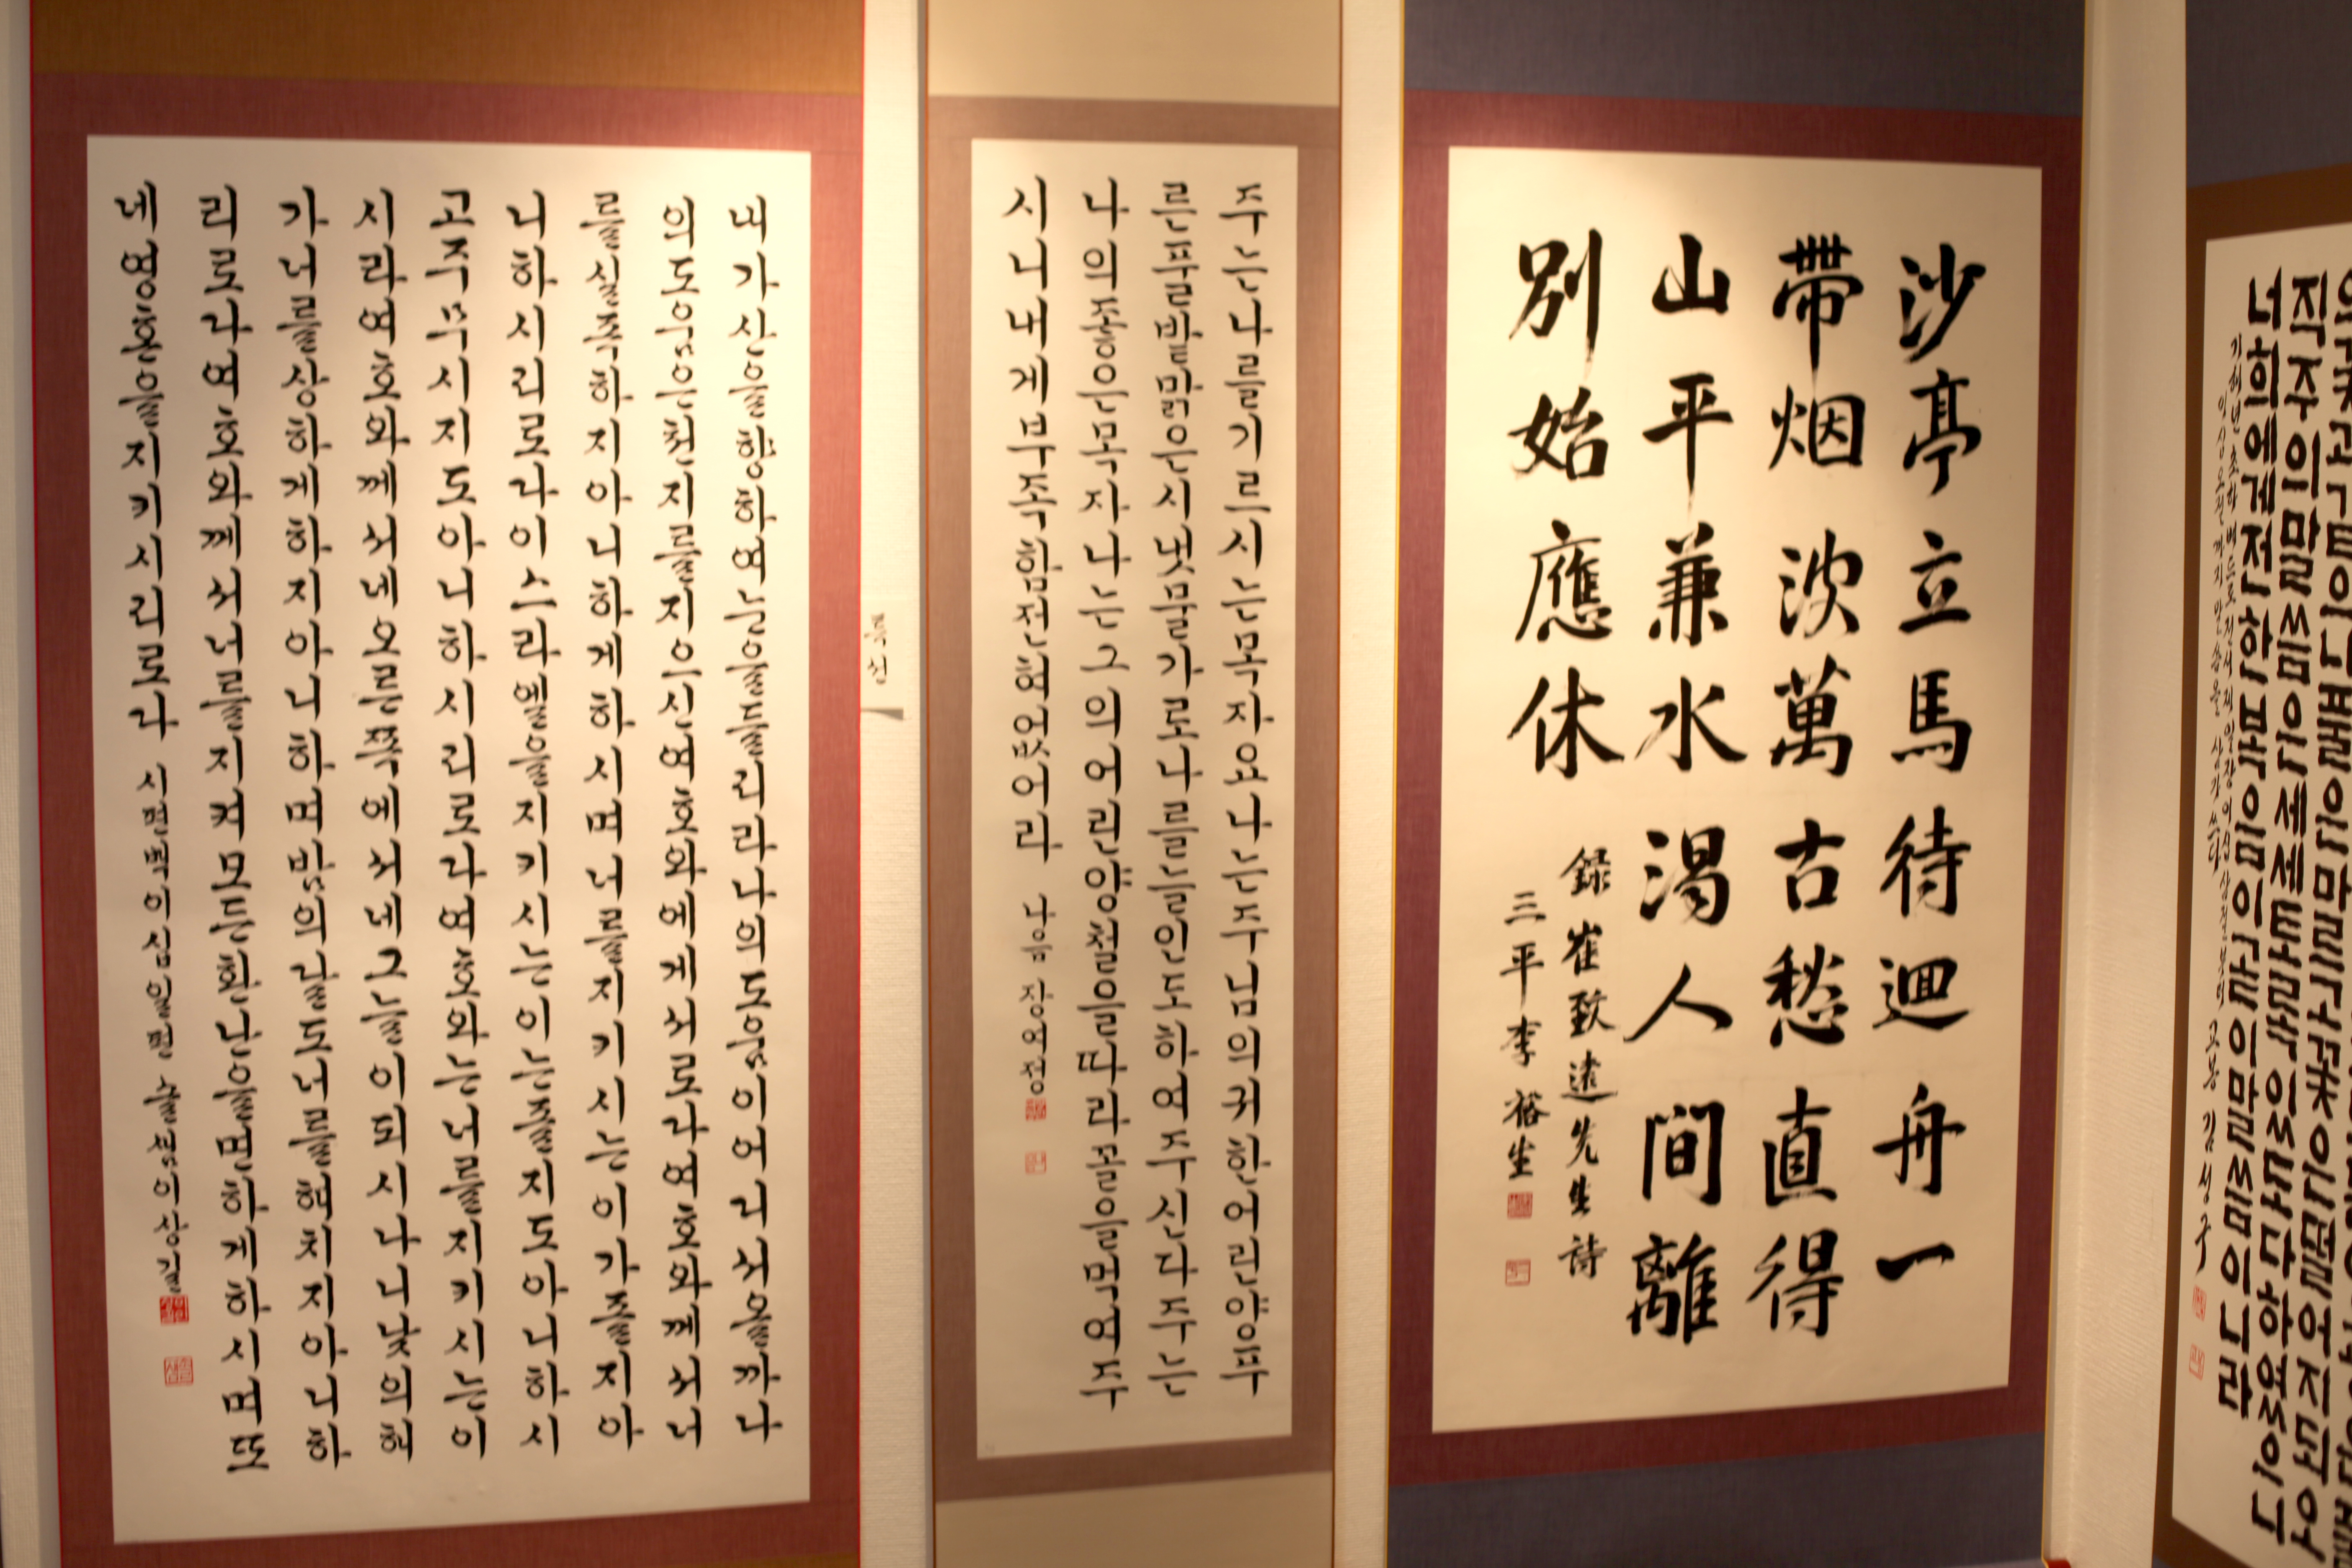 내가산을향하여눈을들리라나의도움이어디서올까나
의도움은천지를지으신여호와에게서로다여호와께서너
를실족하지아니하게하시며너를지키시는이가졸지아
니하시리로다이스라엘을지키시는이는졸지도아니하시
고주무시지도아니하시리로다여호와는너를지키시는이
시라여호와께서네오른쪽에서네그늘이되시나니낮의해
가너를상하게하지아니하며밤의달도너를해치지아니하
리로다여호와께서너를지켜모든환난을면하게하시며또
네영혼을지키시리로다 시편백이십일편 늘샘이상길
특선
주는나를기르시는목자요나는주님의귀한어린양푸
른풀밭맑은시냇물가로나를늘인도하여주신다주는
나의좋은목자나는그의어린양철을따라꼴을먹여주
시니내게부족함전혀없어라
沙亭立馬待迴舟一
帶烟波萬古愁直得
山平兼水渴人間離
別始應休
錄崔致遠先生詩
三平李裕生
의꽃과같으니풀은마르고꽃은떨어지되오
직주의말씀은세세토록있도다하였으니
너희에게전한복음이곧이말씀이니라